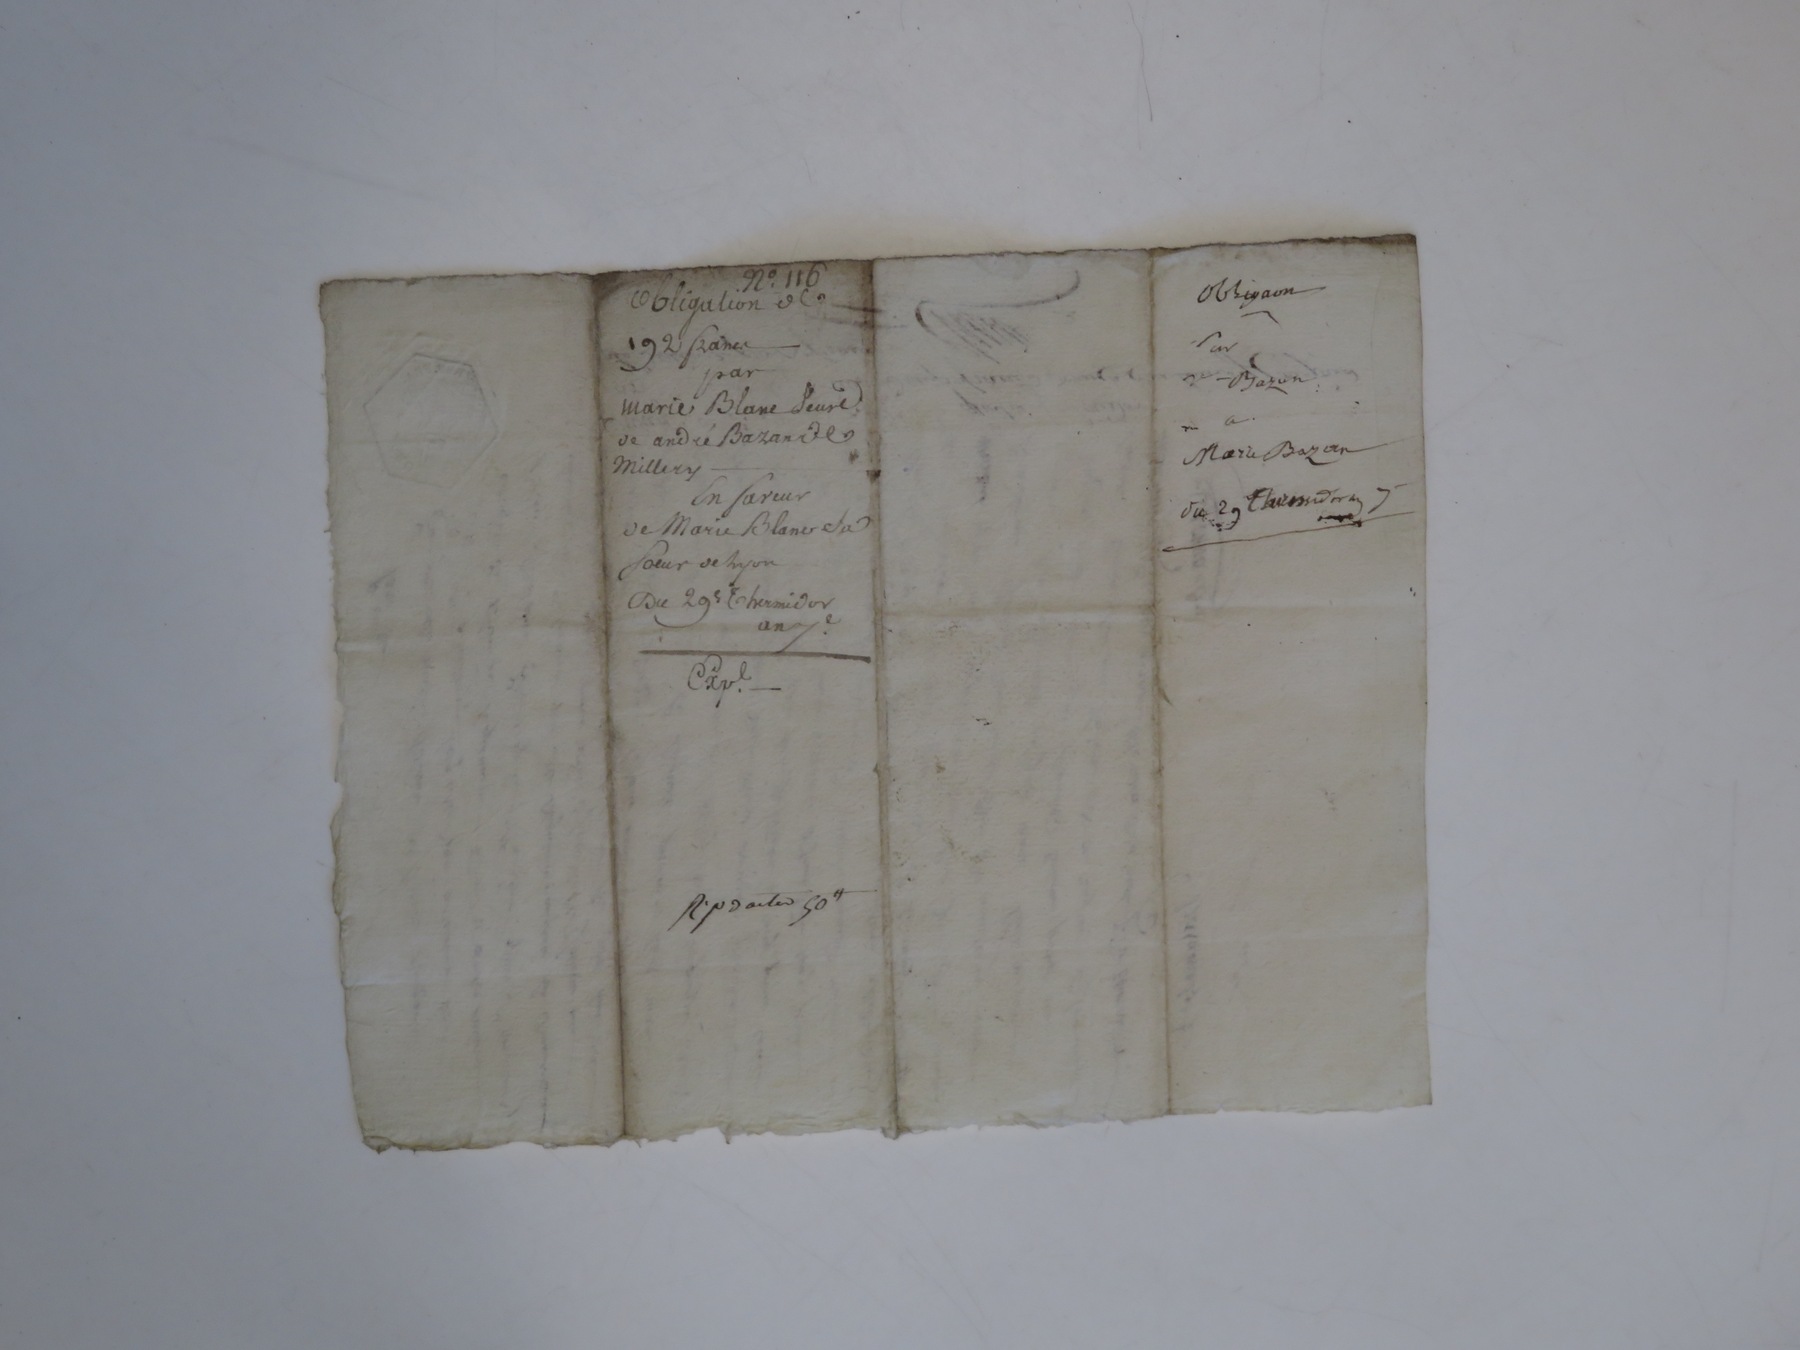 N.º 116
Obligation de
192 francs
par
Marie Blanc veuve
de andré Bazan de
Millery
En faveur
de Marie Blanc Sa
Soeur de Lyon
Du 29e Thermidor
an 7e
Expl.
50#
Obligaon
Par
Bazan
a
Marie Bazan
du 29 Thermidor an 7